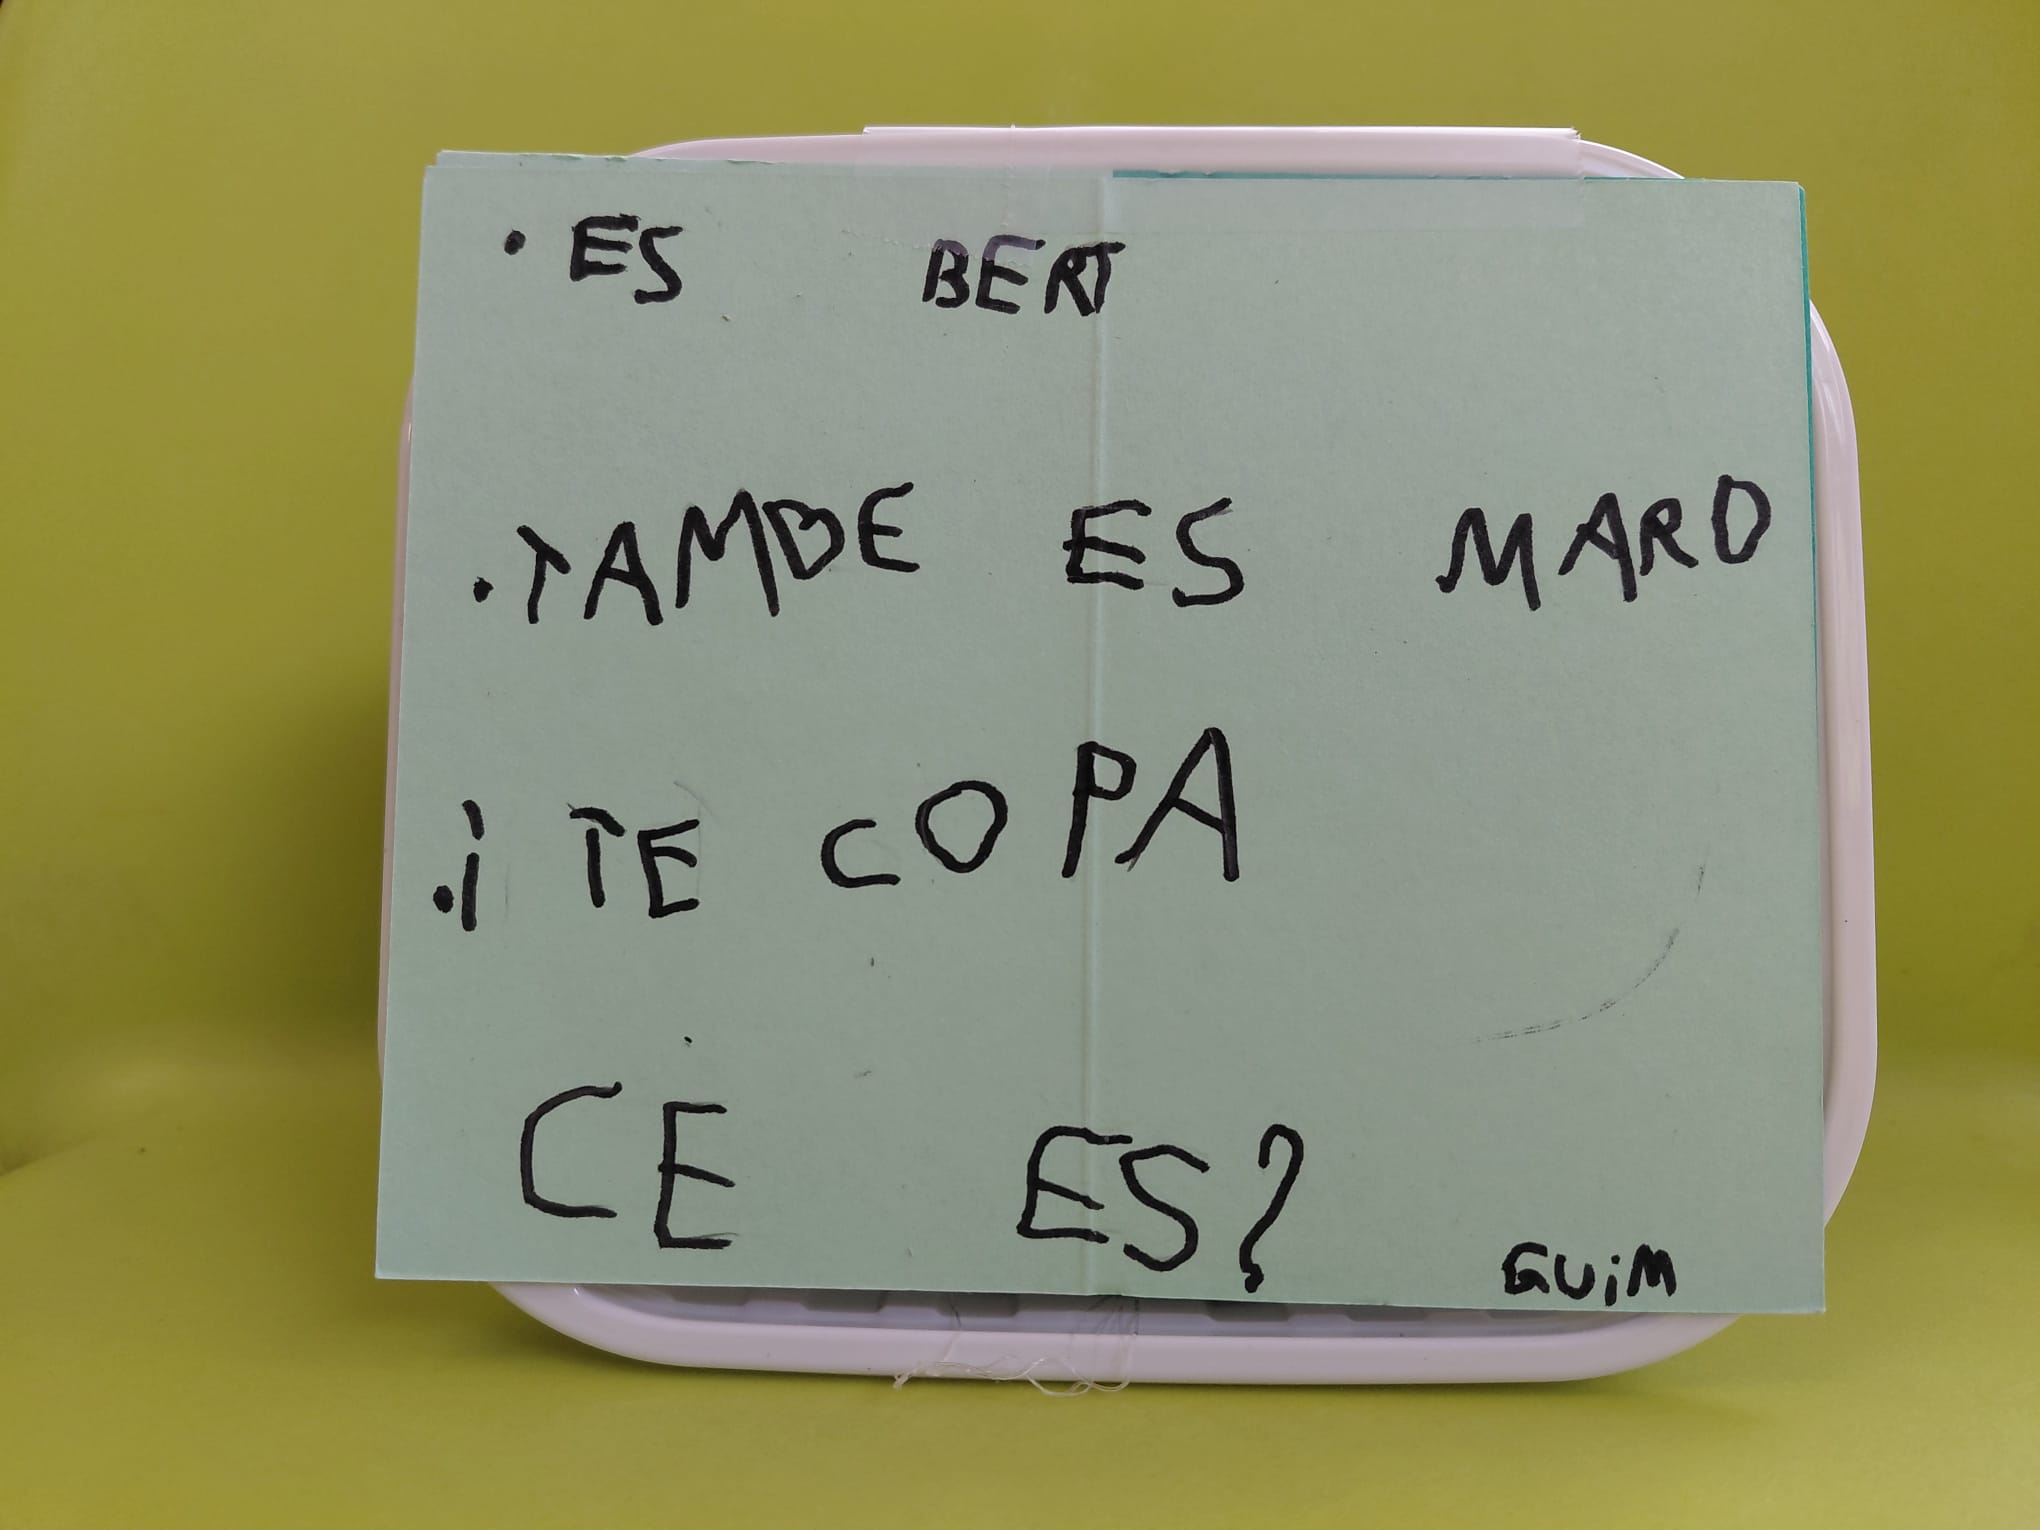 · ES BERT
· TAMBE ES MARO
· i TE COPA
CE ES?
GUiM